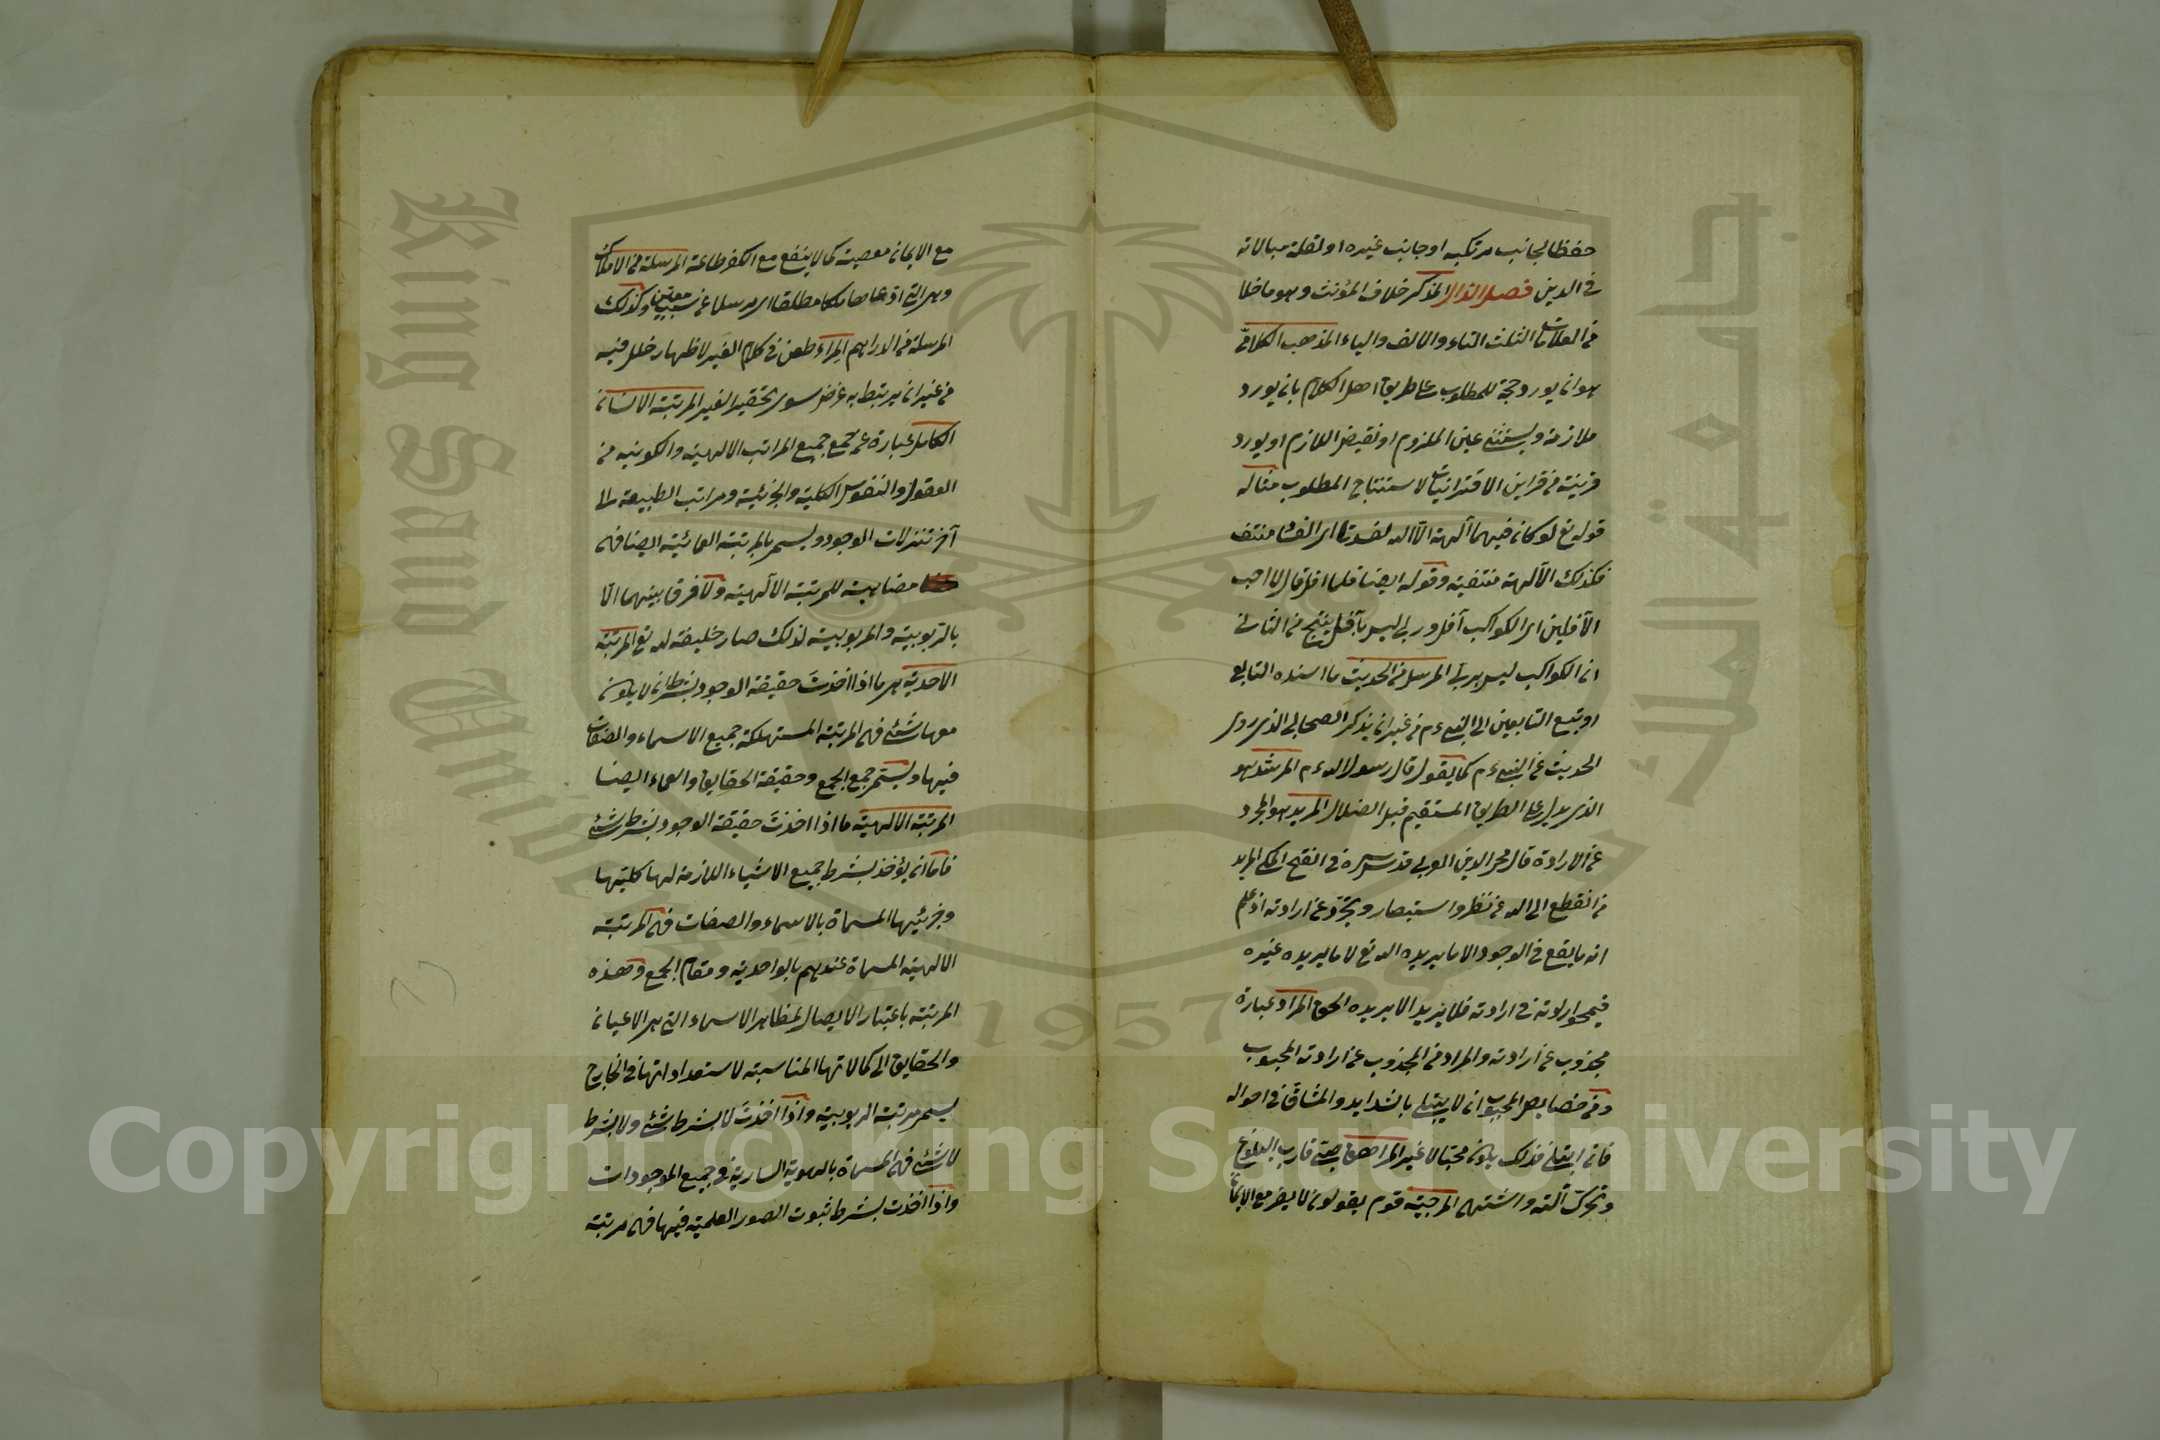 حفظا لجانب مرتكبه او جانب غيره او لقلة مبالاته
في الدين فصل الذال المذكر خلاف المؤنث وهو ما خلا
من العلامات الثلث التاء والالف والياء المذهب الكلامي
هو ان يورد حجة للمطلوب على طريق اهل الكلام بان يورد
ملازمة ويستثنى عين الملزوم او نقيض اللازم او يورد
قرينة من قراين الاقترانيات لاستنتاج المطلوب مثاله
قوله تع لو كان فيهما آلهة الا الله لفسدتا اي الفساد منتف
فكذلك الآلهة منتفية وقوله ايضا فلما افل قال لا احب
الآفلين اي الكواكب آفل وربي ليس بآفل ينتج من الثاني
ان الكواكب ليس بربي المرسل من الحديث ما اسنده التابعي
او تبع التابعين الى النبي عم من غير ان يذكر الصحابي الذي روى
الحديث عن النبي عم كما يقول قال رسول الله عم المرشد هو
الذي يدل على الطريق المستقيم قبل الضلال المريد هو المجرد
عن الارادة قال محي الدين العربي قدس سره في الفتح المكي المريد
من انقطع الى الله عن نظر واستبصار وتجرد عن ارادته اذ علم
انه ما يقع في الوجود الا ما يريده الله تع لا ما يريده غيره
فيمحو ارادته في ارادته فلا يريد الا يريده الحق المراد عبارة
مجذوب عن ارادته والمراد من المجذوب عن ارادته المحبوب
ومن خصايص المحبوب ان لا يبتلى بالشدايد والمشاق في احواله
فان ابتلى فذلك يكون محبا لا غير المراهق صبي قارب البلوغ
وتحرك آلته واشتهى المرجئة قوم يقولون لا يضر مع الايمان
مع الايمان معصية كما لا ينفع مع الكفر طاعة المرسلة من الاملاك
وهي التي ادعاها ملكا مطلقا اي مرسلا عن سبب معين وكذلك
المرسلة من الدراهم المراء طعن في كلام الغير لاظهار خلل فيه
من غير ان يرتبط به غرض سوى تحقير الغير المرتبة الانسان
الكامل عبارة عن جمع جميع المراتب الالهية والكونية من
العقول والنفوس الكلية والجزئية ومراتب الطبيعة الى
آخر تنزلات الوجود ويسمى بالمرتبة العمائية ايضا فهي
مضاهية للمرتبة الآلهية ولا فرق بينهما الا
بالربوبية والمربوبية لذلك صار خليفة لله تع المرتبة
الاحدية هي ما اذا اخذت حقيقة الوجود بشرط ان لا يكون
معها شئ فهي المرتبة المستهلكة جميع الاسماء والصفات
فيها ويسمى جمع الجمع وحقيقة الحقايق والعماء ايضا
المرتبة الالهية ما اذا اخذت حقيقة الوجود بشرط شئ
فاما ان يؤخذ بشرط جميع الاشياء اللازمة لها كليتها
وجزئيها المسماة بالاسماء والصفات فهي المرتبة
الالهية المسماة عندهم بالواحدية ومقام الجمع وهذه
المرتبة باعتبار الايصال لمظاهر الاسماء التي هي الاعيان
والحقايق الى كمالاتها المناسبة لاستعداداتها في الخارج
يسمى مرتبة الربوبية واذا اخذت لا بشرط شئ ولا بشرط
لا شئ فهي المسماة بالهوية السارية في جميع الموجودات
واذا اخذت بشرط ثبوت الصور العلمية فيها فهي مرتبة
King Saud University
جامعة الملك سعود
1957
Copyright © King Saud University